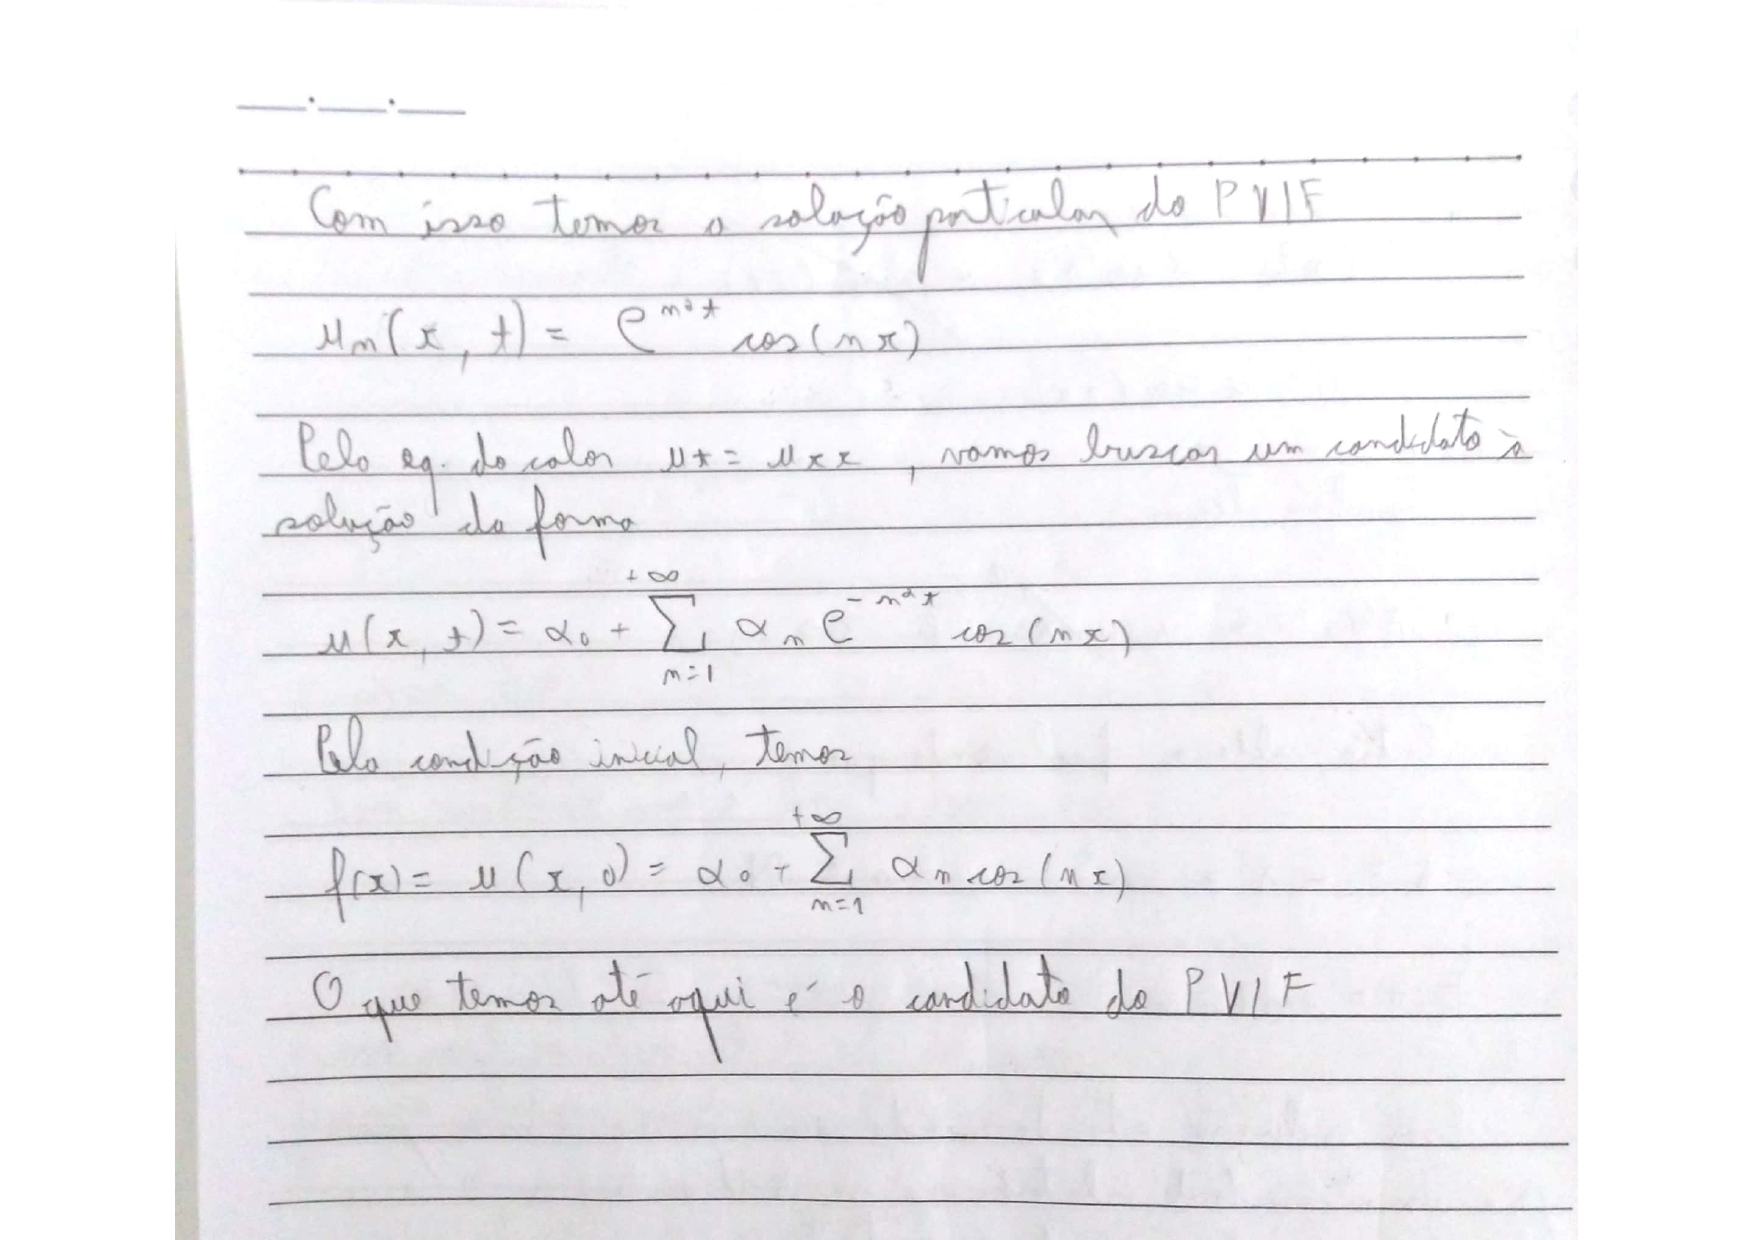 Com isso temos a solução particular do PVIF
u_n(x, t) = e^{n²t} cos(nx)
Pela eq. do calor u_t = u_xx , vamos buscar um candidato à
solução da forma
u(x, t) = α_0 + \sum_{n=1}^{+∞} α_n e^{-n²t} cos(nx)
Pela condição inicial, temos
f(x) = u(x, 0) = α_0 + \sum_{n=1}^{+∞} α_n cos(nx)
O que temos até aqui é o candidato do PVIF